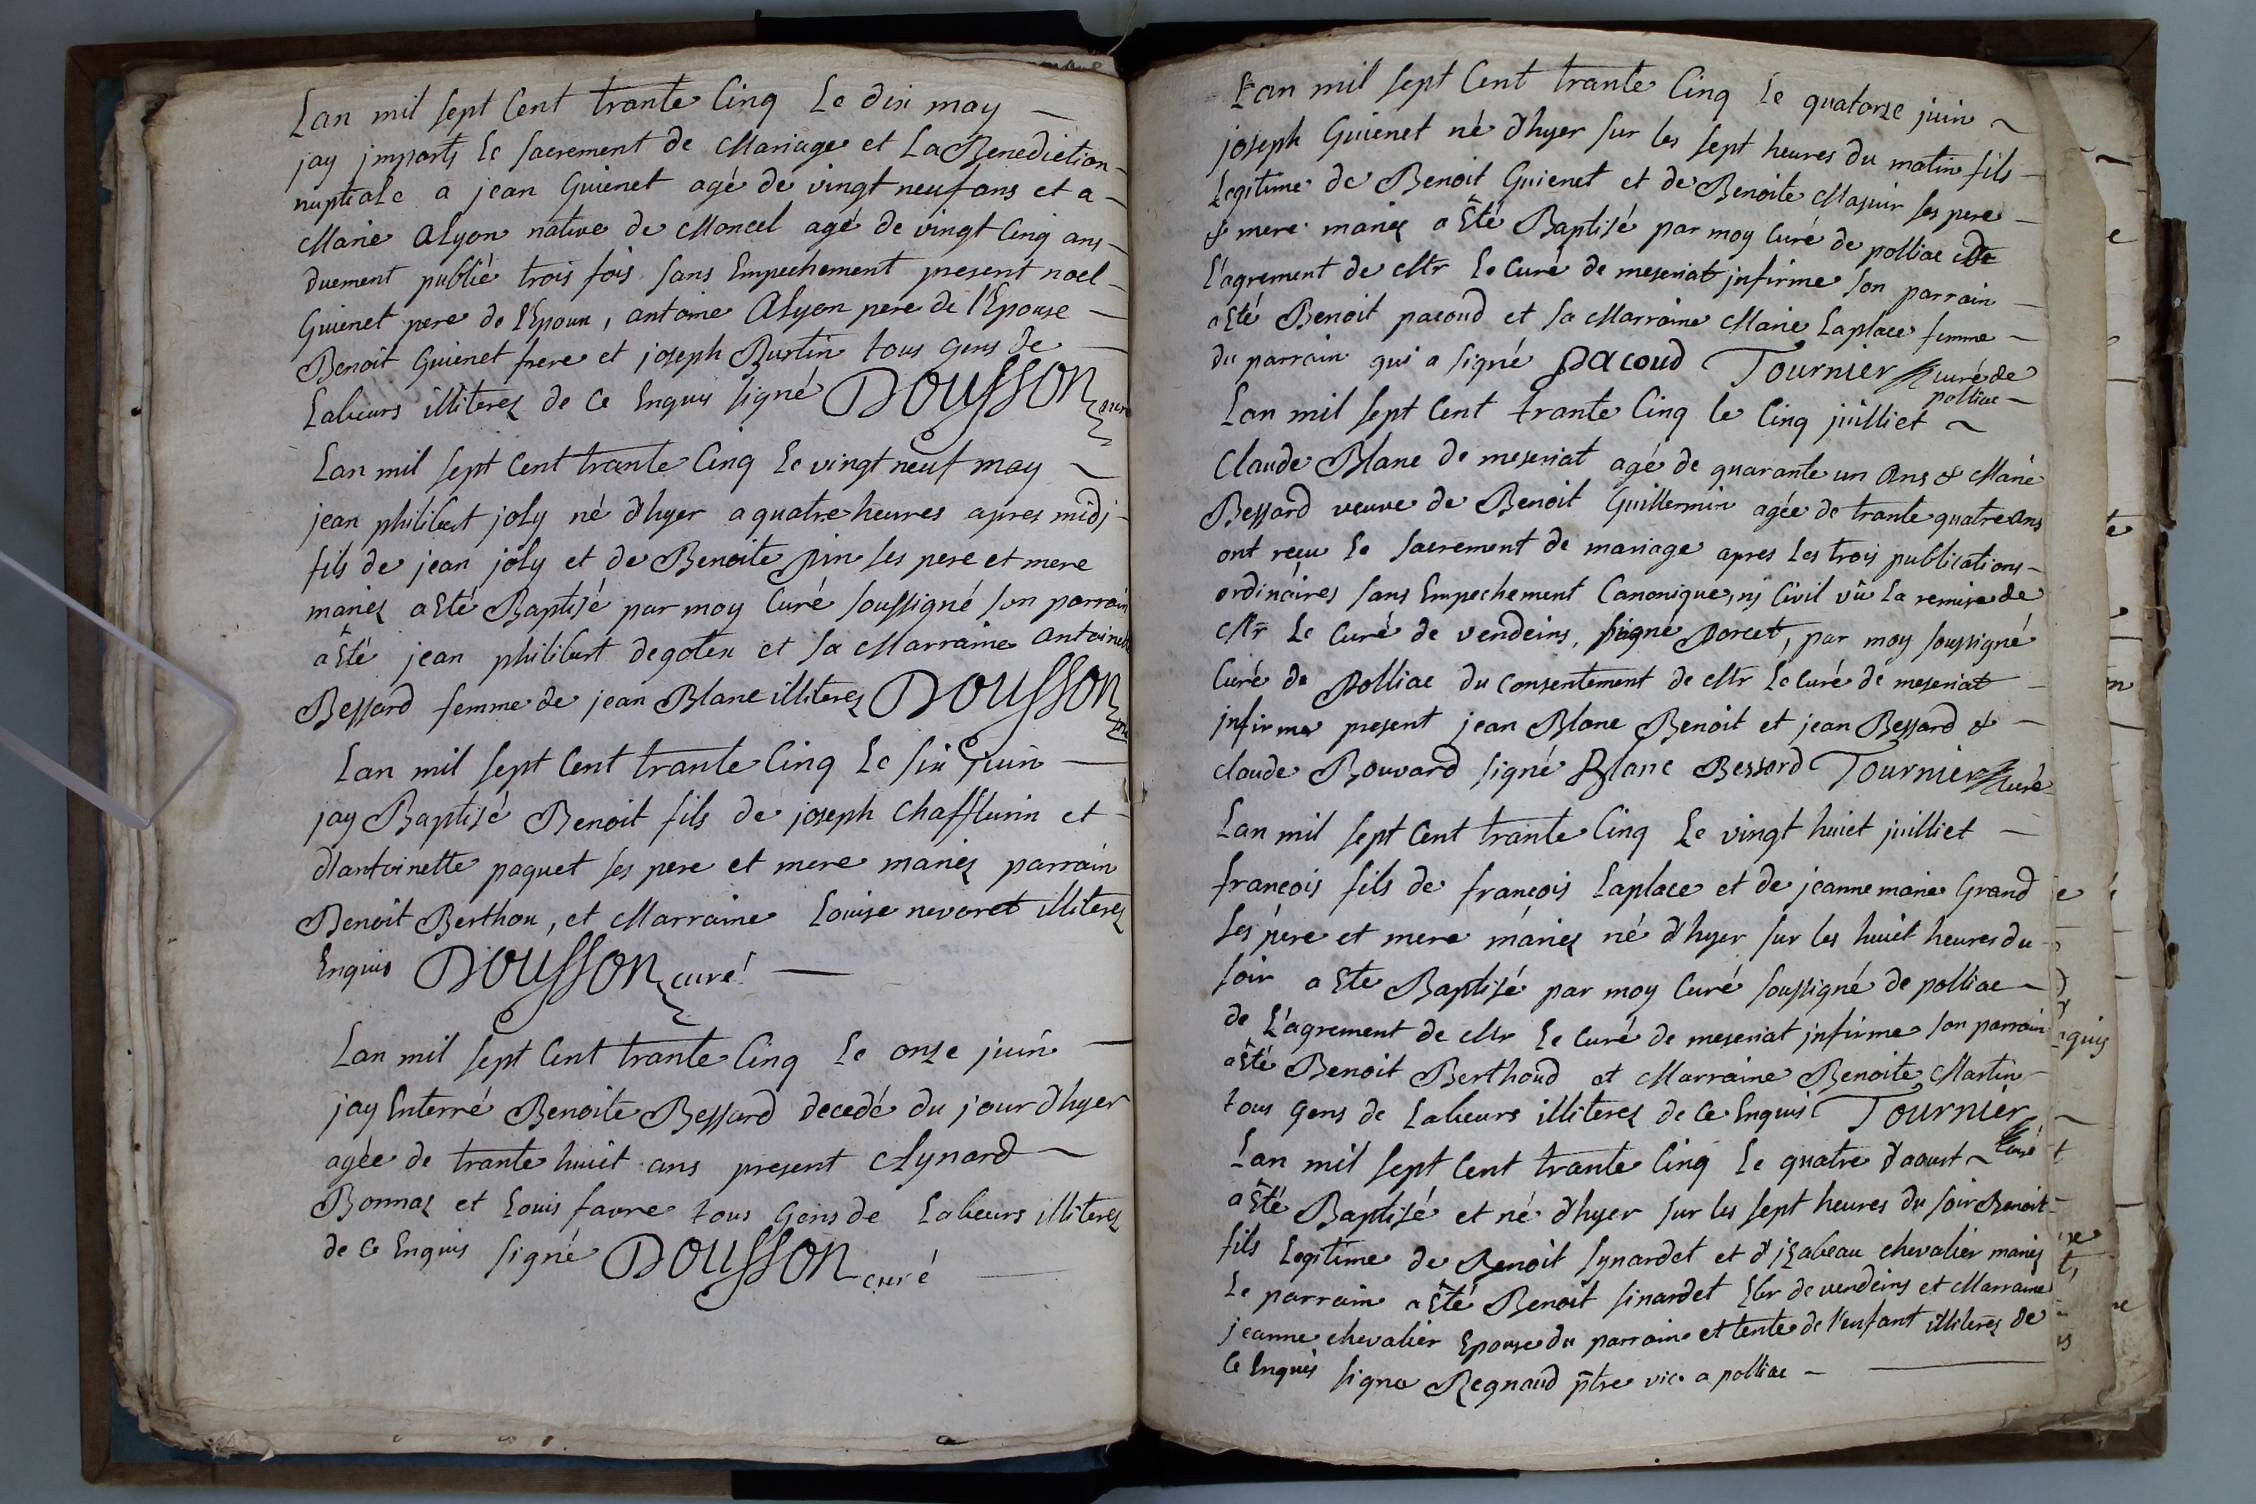 Lan mil sept Cent trante Cinq Le dix may
jay imparti le sacrement de Mariage et La Benediction
nuptiale a jean Guienet agé de vingt neuf ans et a
Marie Alyon native de Moncel agé de vingt Cinq ans
duement publié trois fois sans Empechement present noel
Guienet pere de l'Epoux, antoine Alyon pere de l'Epouse
Benoit Guienet frere et joseph Burtin tous gens de
Labeurs illiterez de Ce Enquis signé Dousson curé
Lan mil sept Cent trante Cinq Le vingt neuf may
jean philibert joly né d'hyer a quatre heures apres midi
fils de jean joly et de Benoite pin ses pere et mere
mariez a Eté Baptisé par moy Curé soussigné son parrain
a Eté jean philibert degoten et sa Marraine antoinette
Bessard femme de jean Blanc illiterez Dousson curé
Lan mil sept Cent trante Cinq Le six juin
jay Baptisé Benoit fils de joseph Chafflurin et
d'antoinette paquet ses pere et mere mariez parrain
Benoit Berthou, et Marraine Louise nevoret illiterez
Enquis Dousson curé
Lan mil sept Cent trante Cinq Le onze juin
jay Enterré Benoite Bessard decedé du jour d'hyer
agée de trante huit ans present Aynard
Bonnaz et Louis favre tous Gens de Labeurs illiterez
de Ce Enquis signé Dousson curé
Lan mil sept Cent trante Cinq Le quatorze juin
joseph Guienet né d'hyer sur les sept heures du matin fils
Legitime de Benoit Guienet et de Benoite Masuir ses pere
& mere mariez a Eté Baptisé par moy Curé de polliac de
L'agrement de Mr Le Curé de meseriat infirme son parrain
a Eté Benoit pacoud et sa Marraine Marie Laplace femme
du parrain qui a signé Pacoud Tournier curé de
polliac
Lan mil sept Cent trante Cinq le Cinq juilliet
Claude Blanc de meseriat agé de quarante un Ans & Marie
Bessard veuve de Benoit Guillermin agée de trante quatre Ans
ont reçu le sacrement de mariage apres les trois publications
ordinaires sans Empechement Canonique, ni Civil vû La remise de
Mr Le Curé de vendeins, signé Dorcet, par moy soussigné
Curé de Polliac du Consentement de Mr Le Curé de meseriat
infirme present jean Blanc Benoit et jean Bessard &
claude Bouvard signé Blanc Bessard Tournier curé
Lan mil sept Cent trante Cinq Le vingt huict juilliet
françois fils de françois Laplace et de jeanne marie Grand
ses pere et mere mariez né d'hyer sur les huict heures du
soir a Ete Baptisé par moy Curé soussigné de polliac
de L'agrement de Mr Le Curé de meseriat infirme son parrain
a Eté Benoit Berthoud et Marraine Benoite Martin
tous gens de Labeurs illiterez de Ce Enquis Tournier
curé
Lan mil sept Cent trante Cinq Le quatre d'aoust
a Eté Baptisé et né d'hyer sur les sept heures du soir Benoit
fils Legitime de Benoit synardet et d'izabeau chevalier mariez
Le parrain a Eté Benoit sinardet de vendeins et Marraine
jeanne chevalier Epouse du parrain et tente de l'enfant illiterez de
Ce Enquis signa Regnaud ptre vic. a polliac